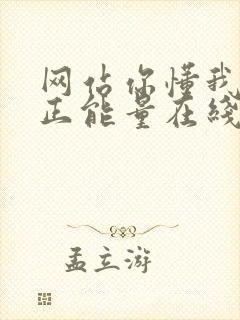 网站你懂我
正能量在线
孟立游